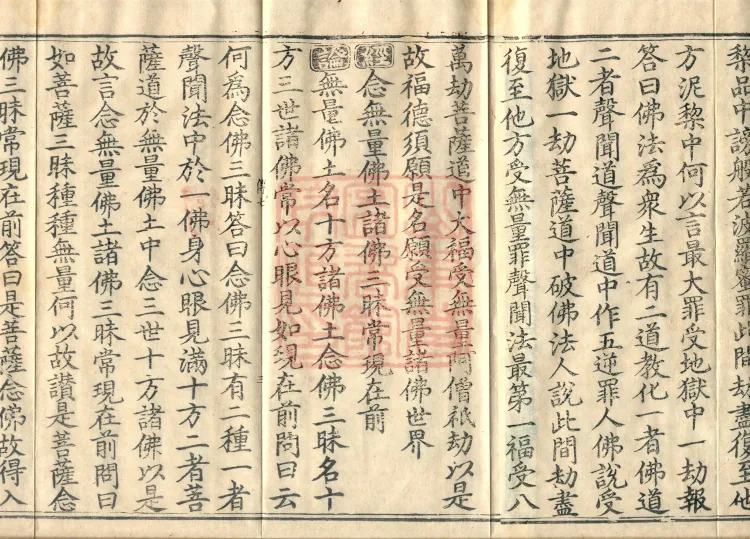 黎品中說般若波羅蜜罪此間劫盡復至他
方泥黎中何以言最大罪受地獄中一劫報
答曰佛法爲衆生故有二道教化一者佛道
二者聲聞道聲聞道中作五逆罪人佛說受
地獄一劫菩薩道中破佛法人說此間劫盡
復至他方受無量罪聲聞法最第一福受八
萬劫菩薩道中大福受無量阿僧祇劫以是
故福德須願是名願受無量諸佛世界
經念無量佛土諸佛三昧常現在前
論無量佛土名十方諸佛土念佛三昧名十
方三世諸佛常以心眼見如現在前問曰云
何爲念佛三昧答曰念佛三昧有二種一者
聲聞法中於一佛身心眼見滿十方二者菩
薩道於無量佛土中念三世十方諸佛以是
故言念無量佛土諸佛三昧常現在前問曰
如菩薩三昧種種無量何以故讃是菩薩念
佛三昧常現在前答曰是菩薩念佛故得入